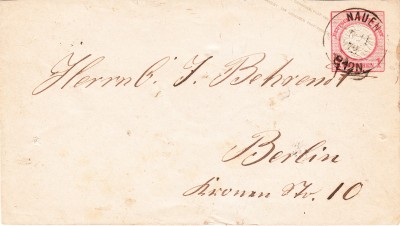 NAUEN
BAHN
Herrn C. J. Behrendt
Berlin
Kronen Str. 10